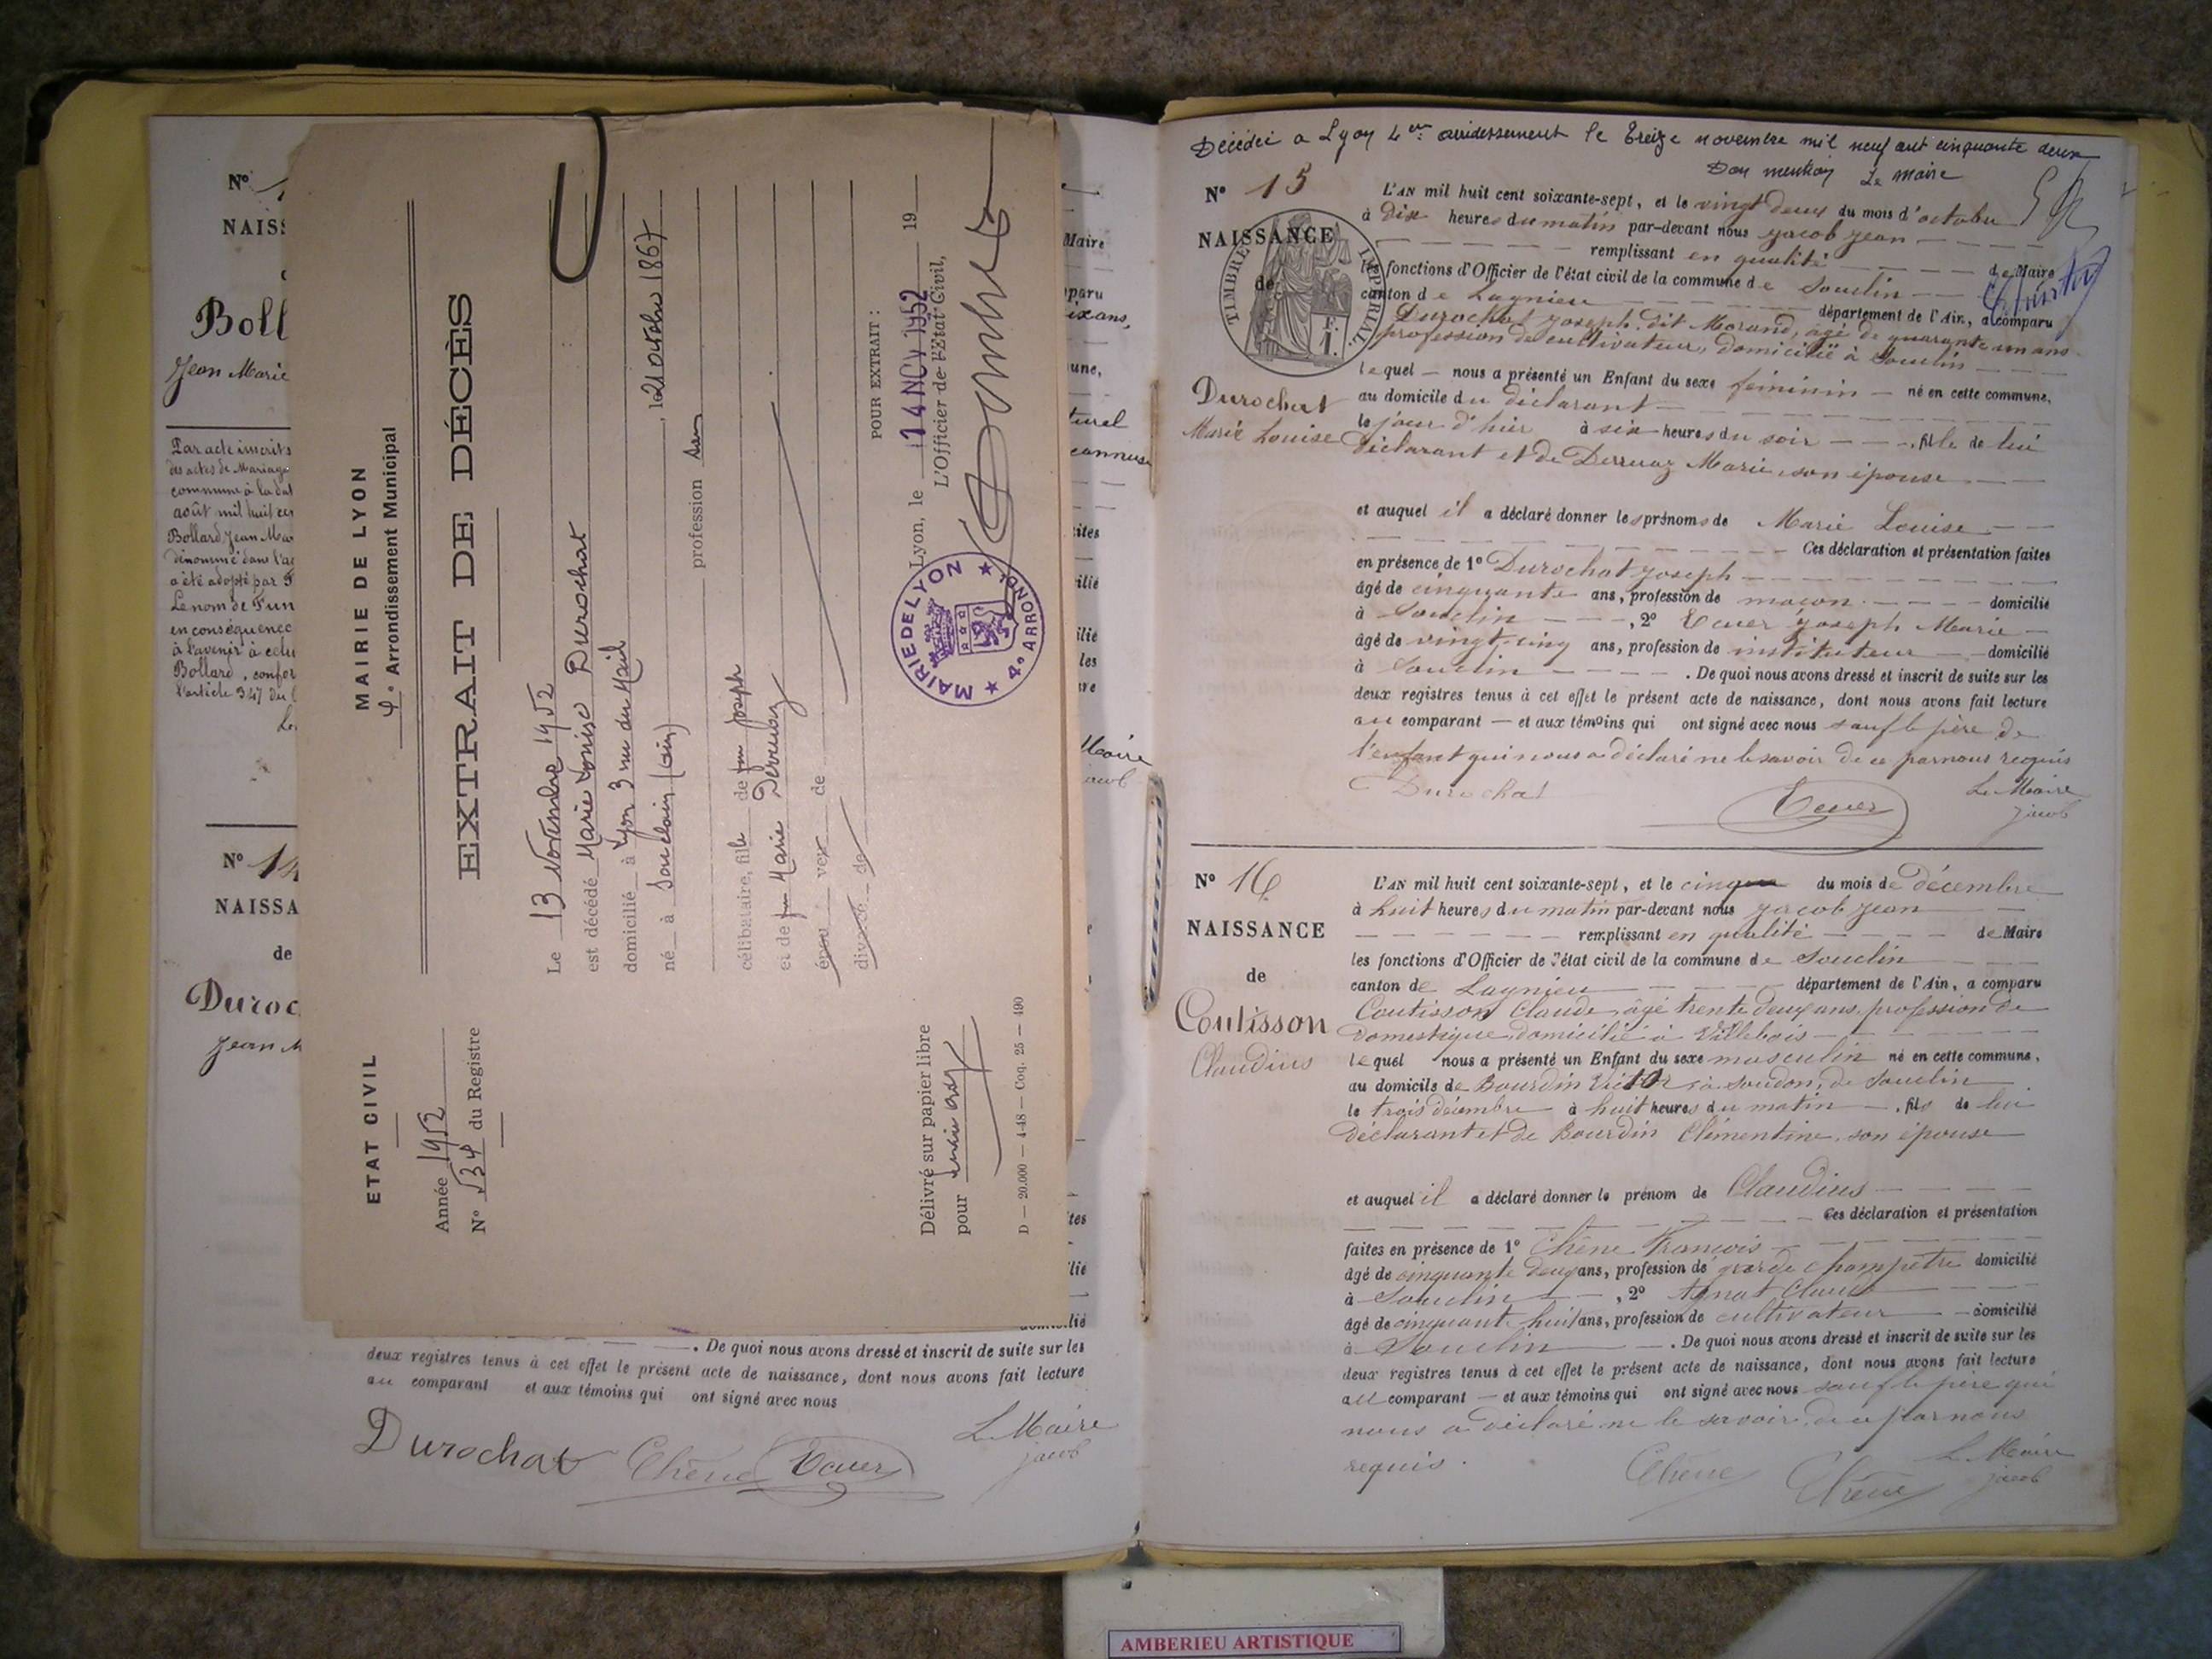 Nº
NAISS
Boll
Jean Marie
Par acte inscrit s
des actes de Mariage
commune à la dat
août mil huit cen
Bollard, Jean Mar
dénommé dans l'ac
a été adopté par
Le nom de
en conséquence
à l'avenir à celui
Bollard, confor
l'article 347 du
Nº 14
NAISSA
de
Duroc
Jean M
Maire
paru
ans,
une,
turel
ites
ilié
ilié
les
Maire
Jacob
tes
lié
domicilié
. De quoi nous avons dressé et inscrit de suite sur les
deux registres tenus à cet effet le présent acte de naissance, dont nous avons fait lecture
au comparant et aux témoins qui ont signé avec nous
Durochat Chêne Tavers Le Maire
Jacob
ETAT CIVIL
Année 1952
Nº 534 du Registre
MAIRIE DE LYON
4e Arrondissement Municipal
EXTRAIT DE DÉCÈS
Le 13 Novembre 1952
est décédé Marie Louise Durochat
domicilié à Lyon 3 rue du Mail
né à Souclin (Ain), 21 octobre 1867
profession sans
célibataire, fille de feu Joseph
et de feu Marie Derruaz
épou veu de
divorcé de
POUR EXTRAIT :
Lyon, le 14 NOV 1952 19
L'Officier de l'État Civil,
MAIRIE DE LYON
4e ARRONDT
Délivré sur papier libre
pour
D — 20.000 — 4-48 — Coq. 25 — 490
Décédée a Lyon 4em arridessement le treize novembre mil neuf cent cinquante deux
Don mention Le maire
Nº 15
NAISSANCE
de
TIMBRE IMPERIAL
1 F.
Durochat
Marie Louise
L'AN mil huit cent soixante-sept, et le vingt deux du mois d'octobre
à dix heures du matin par-devant nous Jacob Jean
remplissant en qualité de Maire
les fonctions d'Officier de l'état civil de la commune de Souclin
canton de Lagnieu département de l'Ain, a comparu
Durochat Joseph, dit Morand, âgé de quarante un ans
profession de cultivateur, domicilié à Souclin
lequel nous a présenté un Enfant du sexe féminin né en cette commune,
au domicile du déclarant
le jour d'hier à six heures du soir, fille de lui
déclarant et de Derruaz Marie, son épouse
et auquel il a déclaré donner les prénoms de Marie Louise
Ces déclaration et présentation faites
en présence de 1º Durochat Joseph
âgé de cinquante ans, profession de maçon domicilié
à Souclin, 2º Joseph Marie
âgé de vingt-cinq ans, profession de instituteur domicilié
à Souclin. De quoi nous avons dressé et inscrit de suite sur les
deux registres tenus à cet effet le présent acte de naissance, dont nous avons fait lecture
au comparant et aux témoins qui ont signé avec nous sauf le père de
l'enfant qui nous a déclaré ne le savoir de ce par nous requis
Durochat Le Maire
Jacob
Nº 16
NAISSANCE
de
Coutisson
Claudius
L'AN mil huit cent soixante-sept, et le cinq du mois de décembre
à huit heures du matin par-devant nous Jacob Jean
remplissant en qualité de Maire
les fonctions d'Officier de l'état civil de la commune de Souclin
canton de Lagnieu département de l'Ain, a comparu
Coutisson Claude, âgé trente deux ans, profession de
domestique, domicilié à Villebois
lequel nous a présenté un Enfant du sexe masculin né en cette commune,
au domicile de Bourdin Victor, à Soudon, de Souclin
le trois décembre à huit heures du matin, fils de lui
déclarant et de Bourdin Clémentine, son épouse
et auquel il a déclaré donner le prénom de Claudius
Ces déclaration et présentation
faites en présence de 1º Chêne François
âgé de cinquante deux ans, profession de garde champêtre domicilié
à Souclin, 2º Claude
âgé de cinquante huit ans, profession de cultivateur domicilié
à Souclin. De quoi nous avons dressé et inscrit de suite sur les
deux registres tenus à cet effet le présent acte de naissance, dont nous avons fait lecture
au comparant et aux témoins qui ont signé avec nous sauf le père qui
nous a déclaré ne le savoir, de ce par nous
requis.
Chêne Chêne Le Maire
Jacob
AMBERIEU ARTISTIQUE